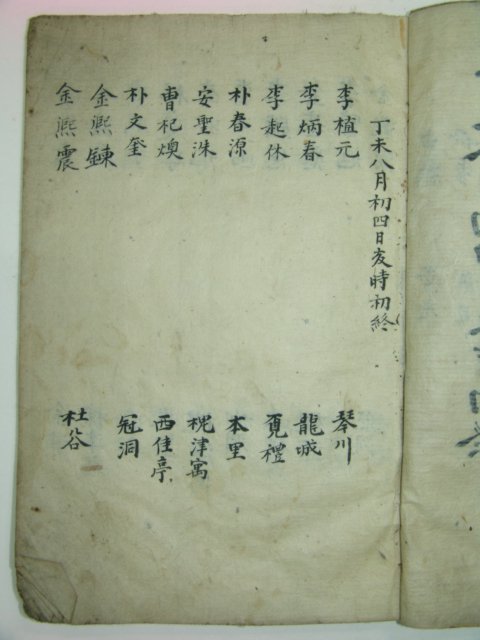 丁未八月初四日亥時初終
李植元 琴川
李炳春 龍城
李起休 覓禮
朴春源 本里
安聖洙 槐津寓
曺杞煥 西佳亭
朴文奎 冠洞
金熙鍊
金熙震 杜谷